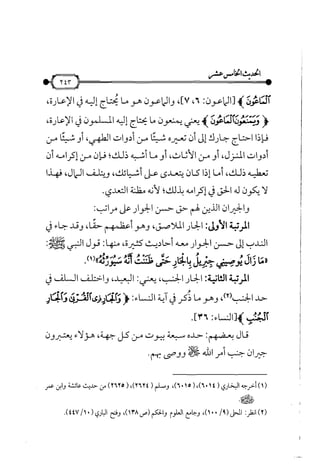 الحديث الخامس عشر
٢٤٣
ٱلْمَاعُونَ ﴾ [الماعون: ٦، ٧]، والماعون هو ما يُحتاج إليه في الإعارة،
﴿ وَيَمْنَعُونَ ٱلْمَاعُونَ ﴾ يعني يمنعون ما يحتاج إليه المسلمون في الإعارة،
فإذا احتاج جارك إلى أن تعيره شيئًا من أدوات الطهي، أو شيئًا من
أدوات المنزل، أو من الأثاث، أو ما أشبه ذلك؛ فإن من إكرامه أن
تعطيه ذلك، أما إذا كان يتعدى على أشيائك، ويتلف المال، فهذا
لا يكون له الحق في إكرامه بذلك؛ لأنه مظنة التعدي.
والجيران الذين لهم حق حسن الجوار على مراتب:
المرتبة الأولى: الجار الملاصق، وهو أعظمهم حقًا، وقد جاء في
الندب إلى حسن الجوار معه أحاديث كثيرة، منها: قول النبي ﷺ:
«مَا زَالَ يُوصِينِي جِبْرِيلُ بِالْجَارِ حَتَّى ظَنَنْتُ أَنَّهُ سَيُوَرِّثُهُ»(١).
المرتبة الثانية: الجار الجنب، يعني: البعيد، واختلف السلف في
حد الجنب(٢)، وهو ما ذُكر في آية النساء: ﴿ وَٱلْجَارِ ذِى ٱلْقُرْبَىٰ وَٱلْجَارِ
ٱلْجُنُبِ ﴾ [النساء: ٣٦].
قال بعضهم: حده سبعة بيوت من كل جهة، هؤلاء يعتبرون
جيران جنب أمر الله ﷺ ووصى بهم.
(١) أخرجه البخاري (٦٠١٤)، (٦٠١٥)، ومسلم (٢٦٢٤)، (٢٦٢٥) من حديث عائشة وابن عمر
(٢) انظر: المحلى (٩/ ١٠٠)، وجامع العلوم والحكم (ص ١٣٨)، وفتح الباري (١٠/ ٤٤٧).